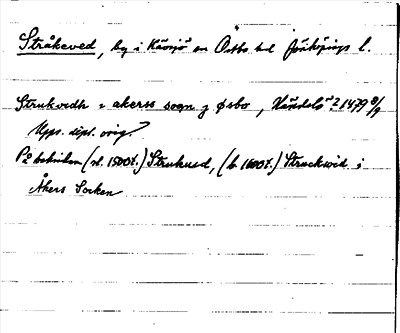 Stråkeved, by i Kävsjö sn Östbo hd Jönköpings l.
Strukvedh i akerss sogn j Øsbo, Händelö? 1479 8/9
Upps. dipl. orig.
På baksidan (sl. 1500t.) Strukued, (b. 1600t.) Struckwid i
Åkers Socken